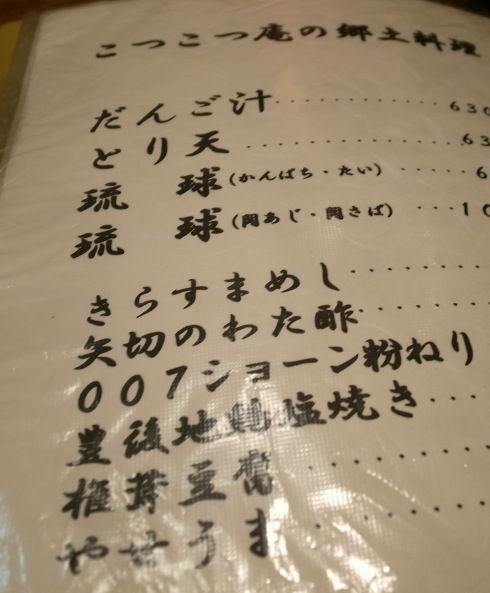 こつこつ庵の郷土料理
だんご汁 630
とり天 63
琉球(かんぱち・たい) 6
琉球(関あじ・関さば) 10
きらすまめし
矢切のわた酢
007ショーン粉ねり
豊後地鶏塩焼き
椎茸豆腐
やせうま